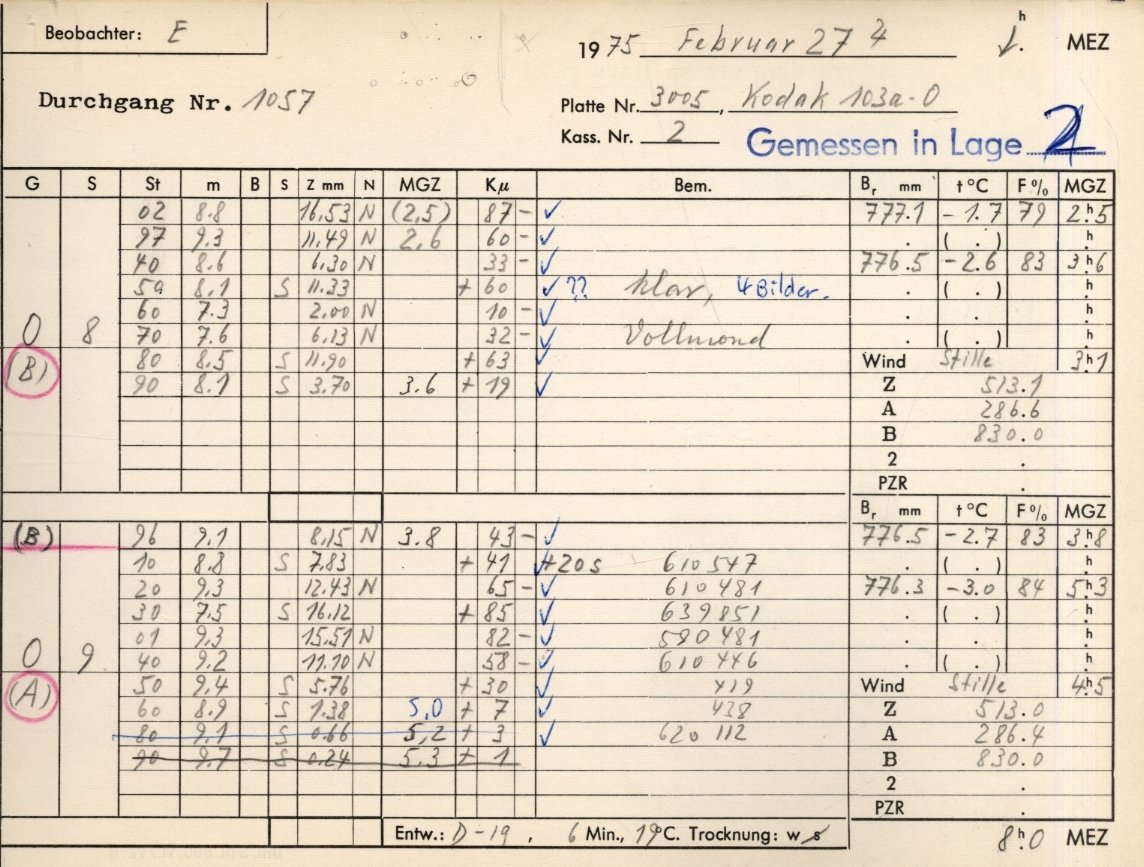 Beobachter: E
1975 Februar 27 h MEZ
Durchgang Nr. 1057
Platte Nr. 3005, Kodak 103a-O
Kass. Nr. 2 Gemessen in Lage
G S St m B S Z mm N MGZ Kμ Bem. Br mm t°C F% MGZ
02 8.8 16.53 N (2,5) 87 - ✓ 777.1 -1.7 79 2h5
97 9.3 11.49 N 2.6 60 - ✓ . ( . ) h
40 8.6 6.30 N 33 - ✓ 776.5 -2.6 83 3h6
50 8.1 S 11.33 + 60 ✓ ?? klar, 4 Bilder. . ( . ) h
60 7.3 2.00 N 10 - ✓ . . h
0 8 70 7.6 6.13 N 32 - ✓ Vollmond . ( . ) h
(B) 80 8.5 S 11.90 + 63 ✓ Wind Stille 3h1
90 8.1 S 3.70 3.6 + 19 ✓ Z 513.1
A 286.6
B 830.0
2 .
PZR .
Br mm t°C F% MGZ
(B) 96 9.1 8.15 N 3.8 43 - ✓ 776.5 -2.7 83 3h8
10 8.8 S 7.83 + 41 ✓ +20s 610547 . ( . ) h
20 9.3 12.43 N 65 - ✓ 610481 776.3 -3.0 84 5h3
30 7.5 S 16.12 + 85 ✓ 639851 . ( . ) h
01 9.3 15.51 N 82 - ✓ 580481 . . h
0 9 40 9.2 11.10 N 58 - ✓ 610446 . ( . ) h
(A) 50 9.4 S 5.76 + 30 ✓ 419 Wind Stille 4h5
60 8.9 S 1.38 5,0 + 7 ✓ 438 Z 513.0
80 9.1 S 0.66 5,2 + 3 ✓ 620112 A 286.4
90 9.7 S 0.24 5.3 + 1 B 830.0
2 .
PZR .
Entw.: D-19, 6 Min., 19°C. Trocknung: w s 8h0 MEZ